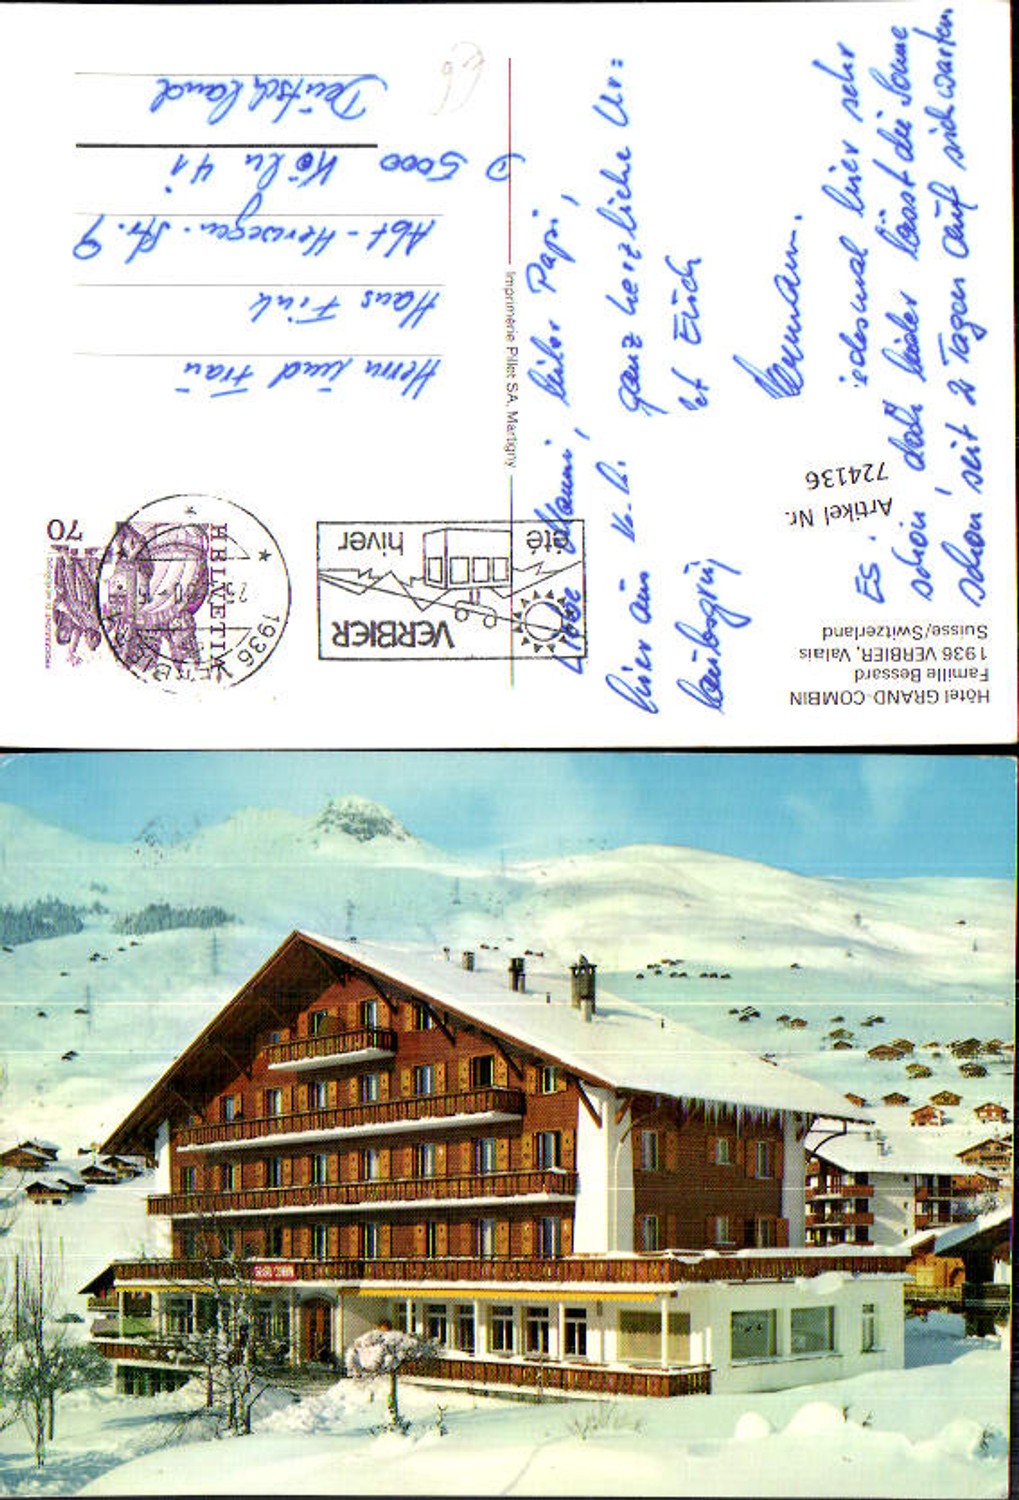 Hôtel GRAND-COMBIN
Famille Bessard
1936 VERBIER, Valais
Suisse/Switzerland
Artikel Nr.
724136
Liebe Mammi, lieber Papi,
hier ein ganz herzliche Ur=
laubsgruß Euch
Hermann.
Es jedesmal hier sehr
schön, doch leider lässt die Sonne
schon seit 2 Tagen auf sich warten
Imprimerie Pillet SA, Martigny
VERBIER
été hiver
1936 VERBIER
HELVETIA
70
Herrn und Frau
Hans Fink
Abt-Herwegen-Str. 9
D 5000 Köln 41
Deutschland